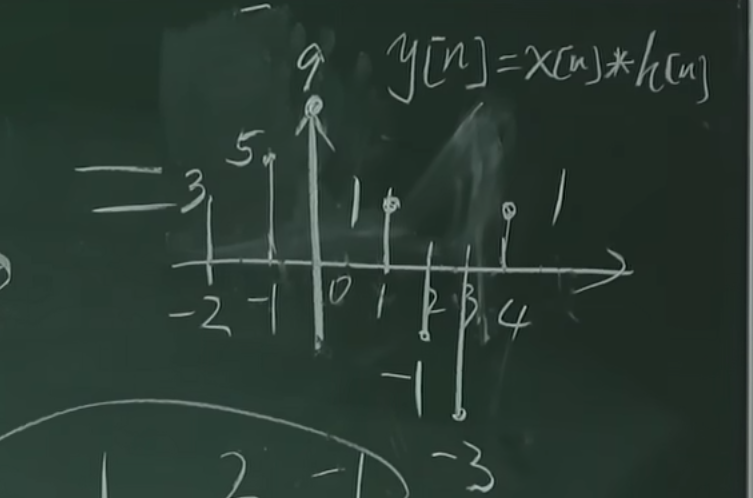 9 y[n]=x[n]*h[n]
= 3 5 1 1
-2 -1 0 1 2 3 4
-1
-3
1 2 -1